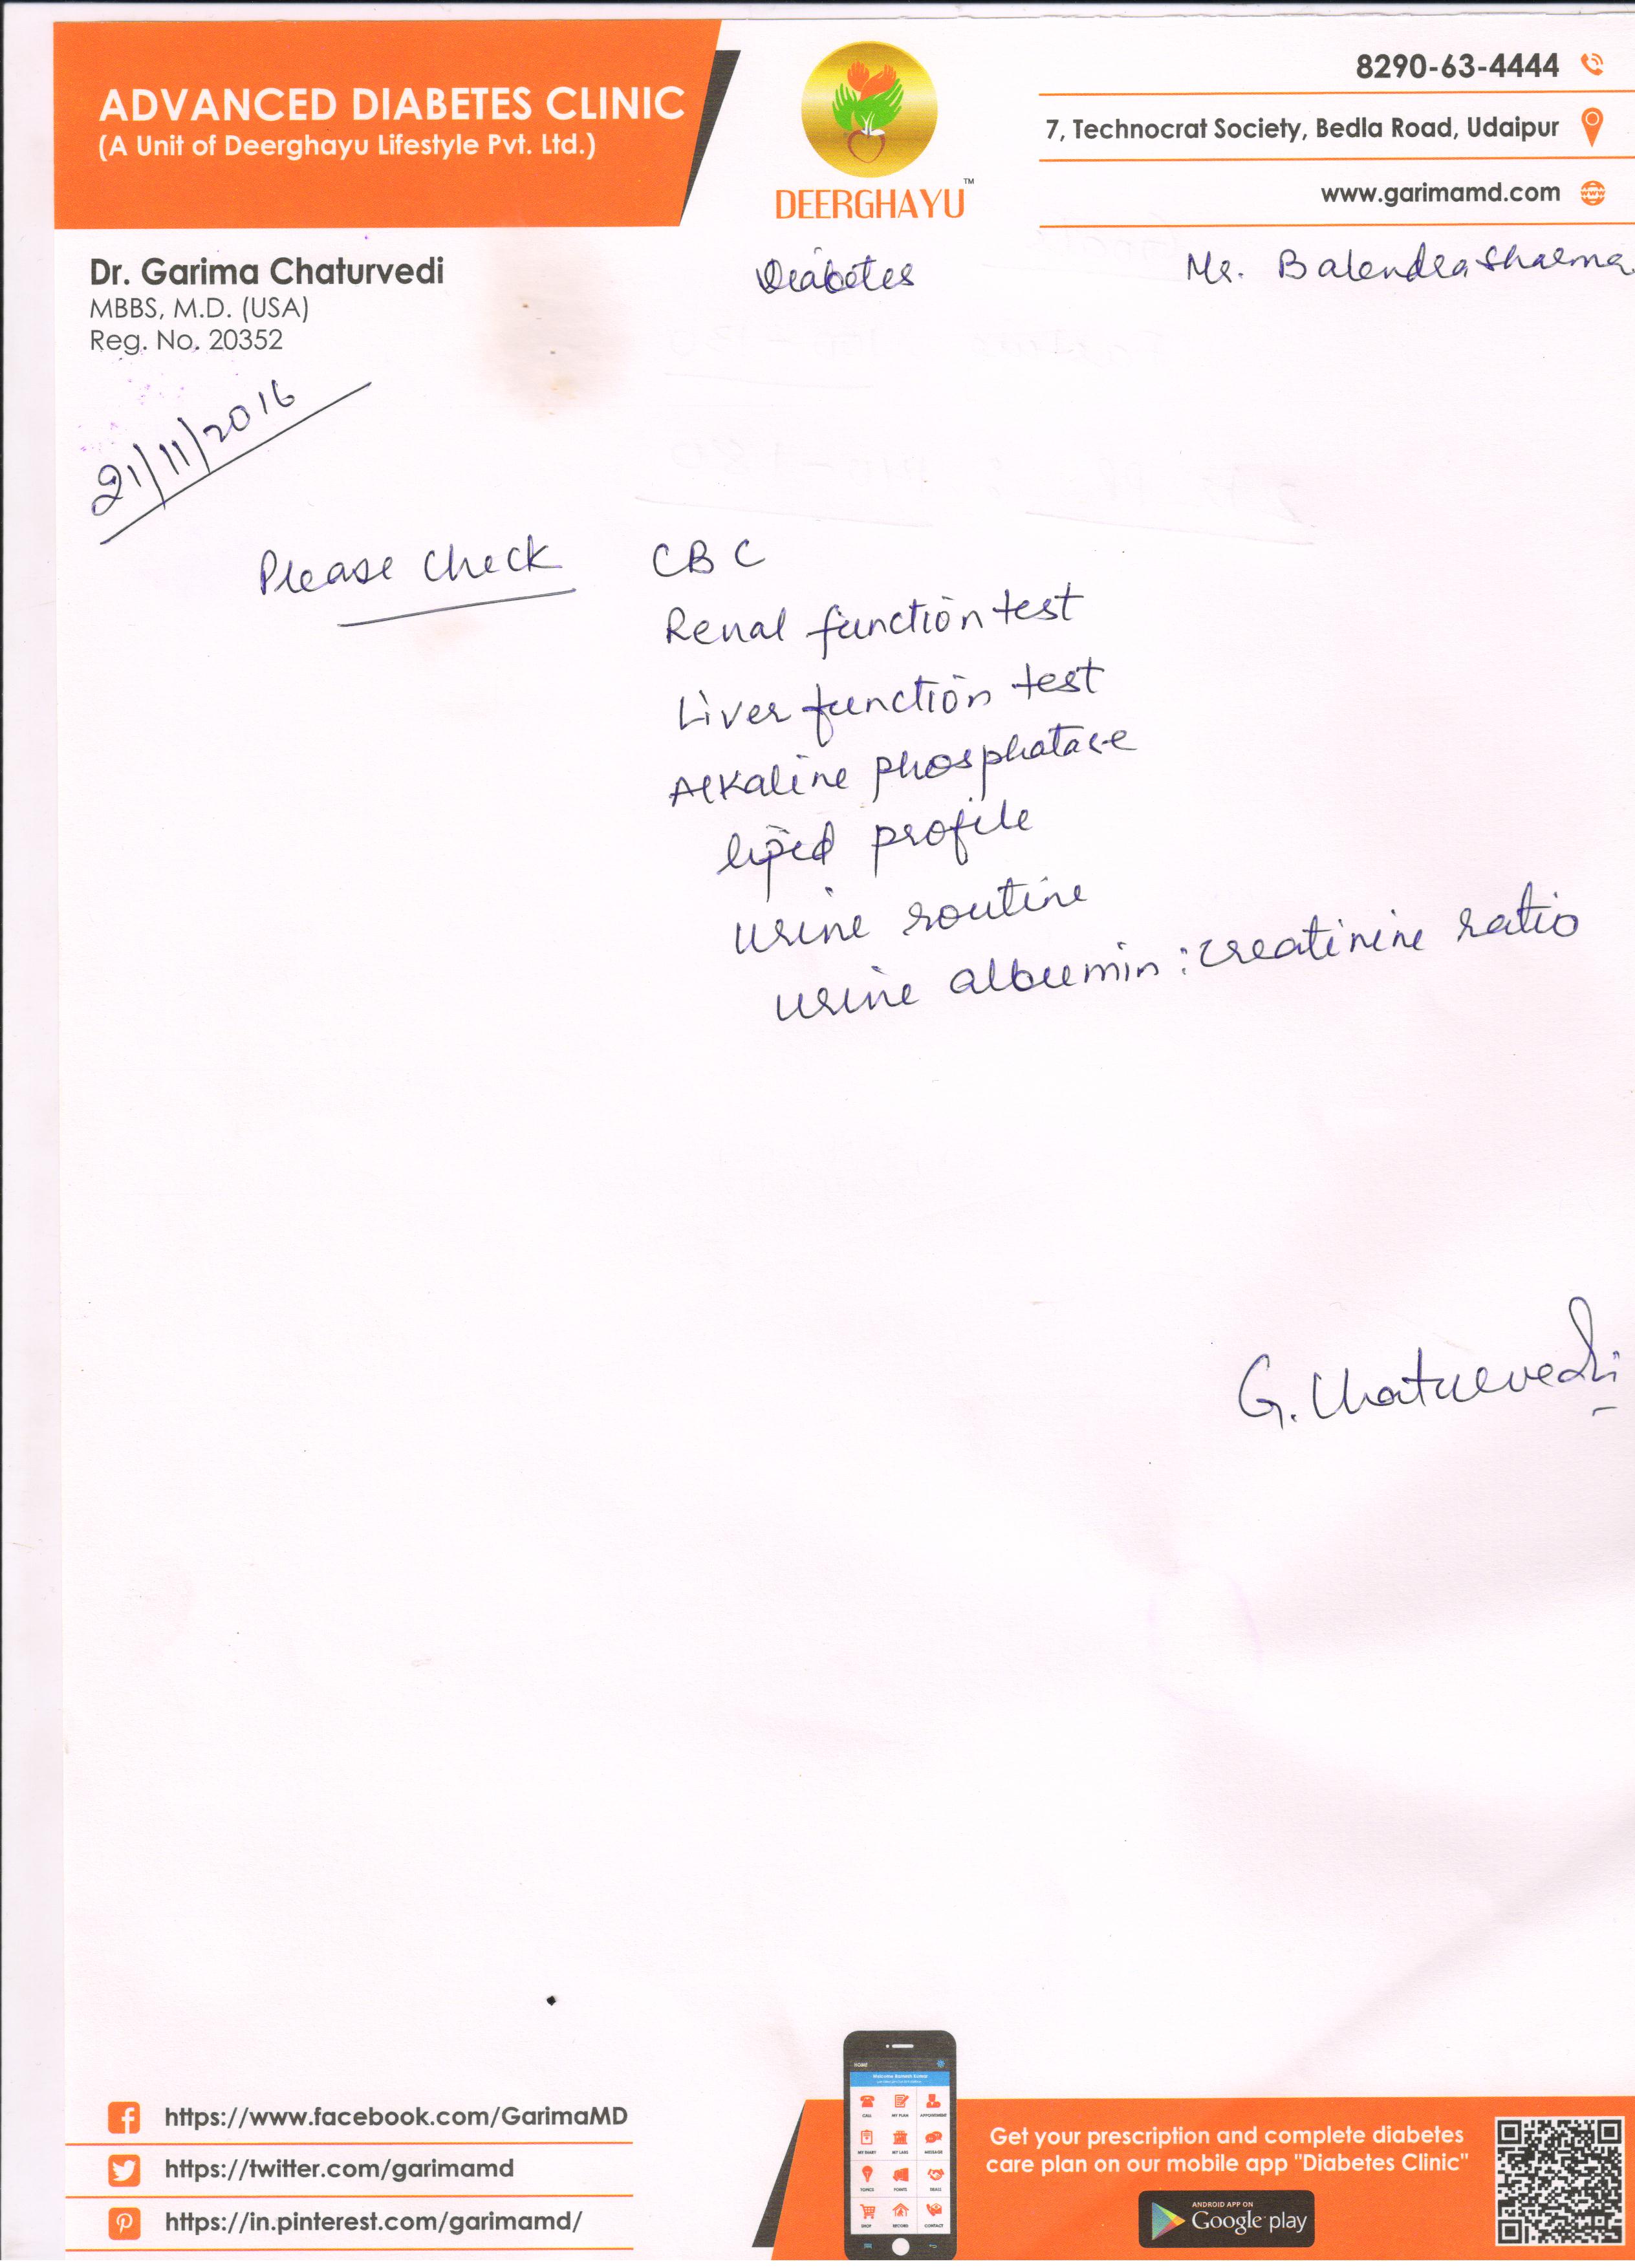 ADVANCED DIABETES CLINIC
(A Unit of Deerghayu Lifestyle Pvt. Ltd.)
DEERGHAYU™
8290-63-4444
7, Technocrat Society, Bedla Road, Udaipur
www.garimamd.com
Dr. Garima Chaturvedi
MBBS, M.D. (USA)
Reg. No. 20352
Diabetes
Mr. Balendra Sharma
21/11/2016
Please check CBC
Renal function test
Liver function test
Alkaline phosphatase
lipid profile
urine routine
urine albumin : creatinine ratio
G. Chaturvedi
https://www.facebook.com/GarimaMD
https://twitter.com/garimamd
https://in.pinterest.com/garimamd/
HOME
CALL MY PLAN APPOINTMENT
MY DIARY MY LABS MESSAGE
TOPICS POINTS DEALS
SHOP CONTACT
Get your prescription and complete diabetes
care plan on our mobile app "Diabetes Clinic"
ANDROID APP ON
Google play